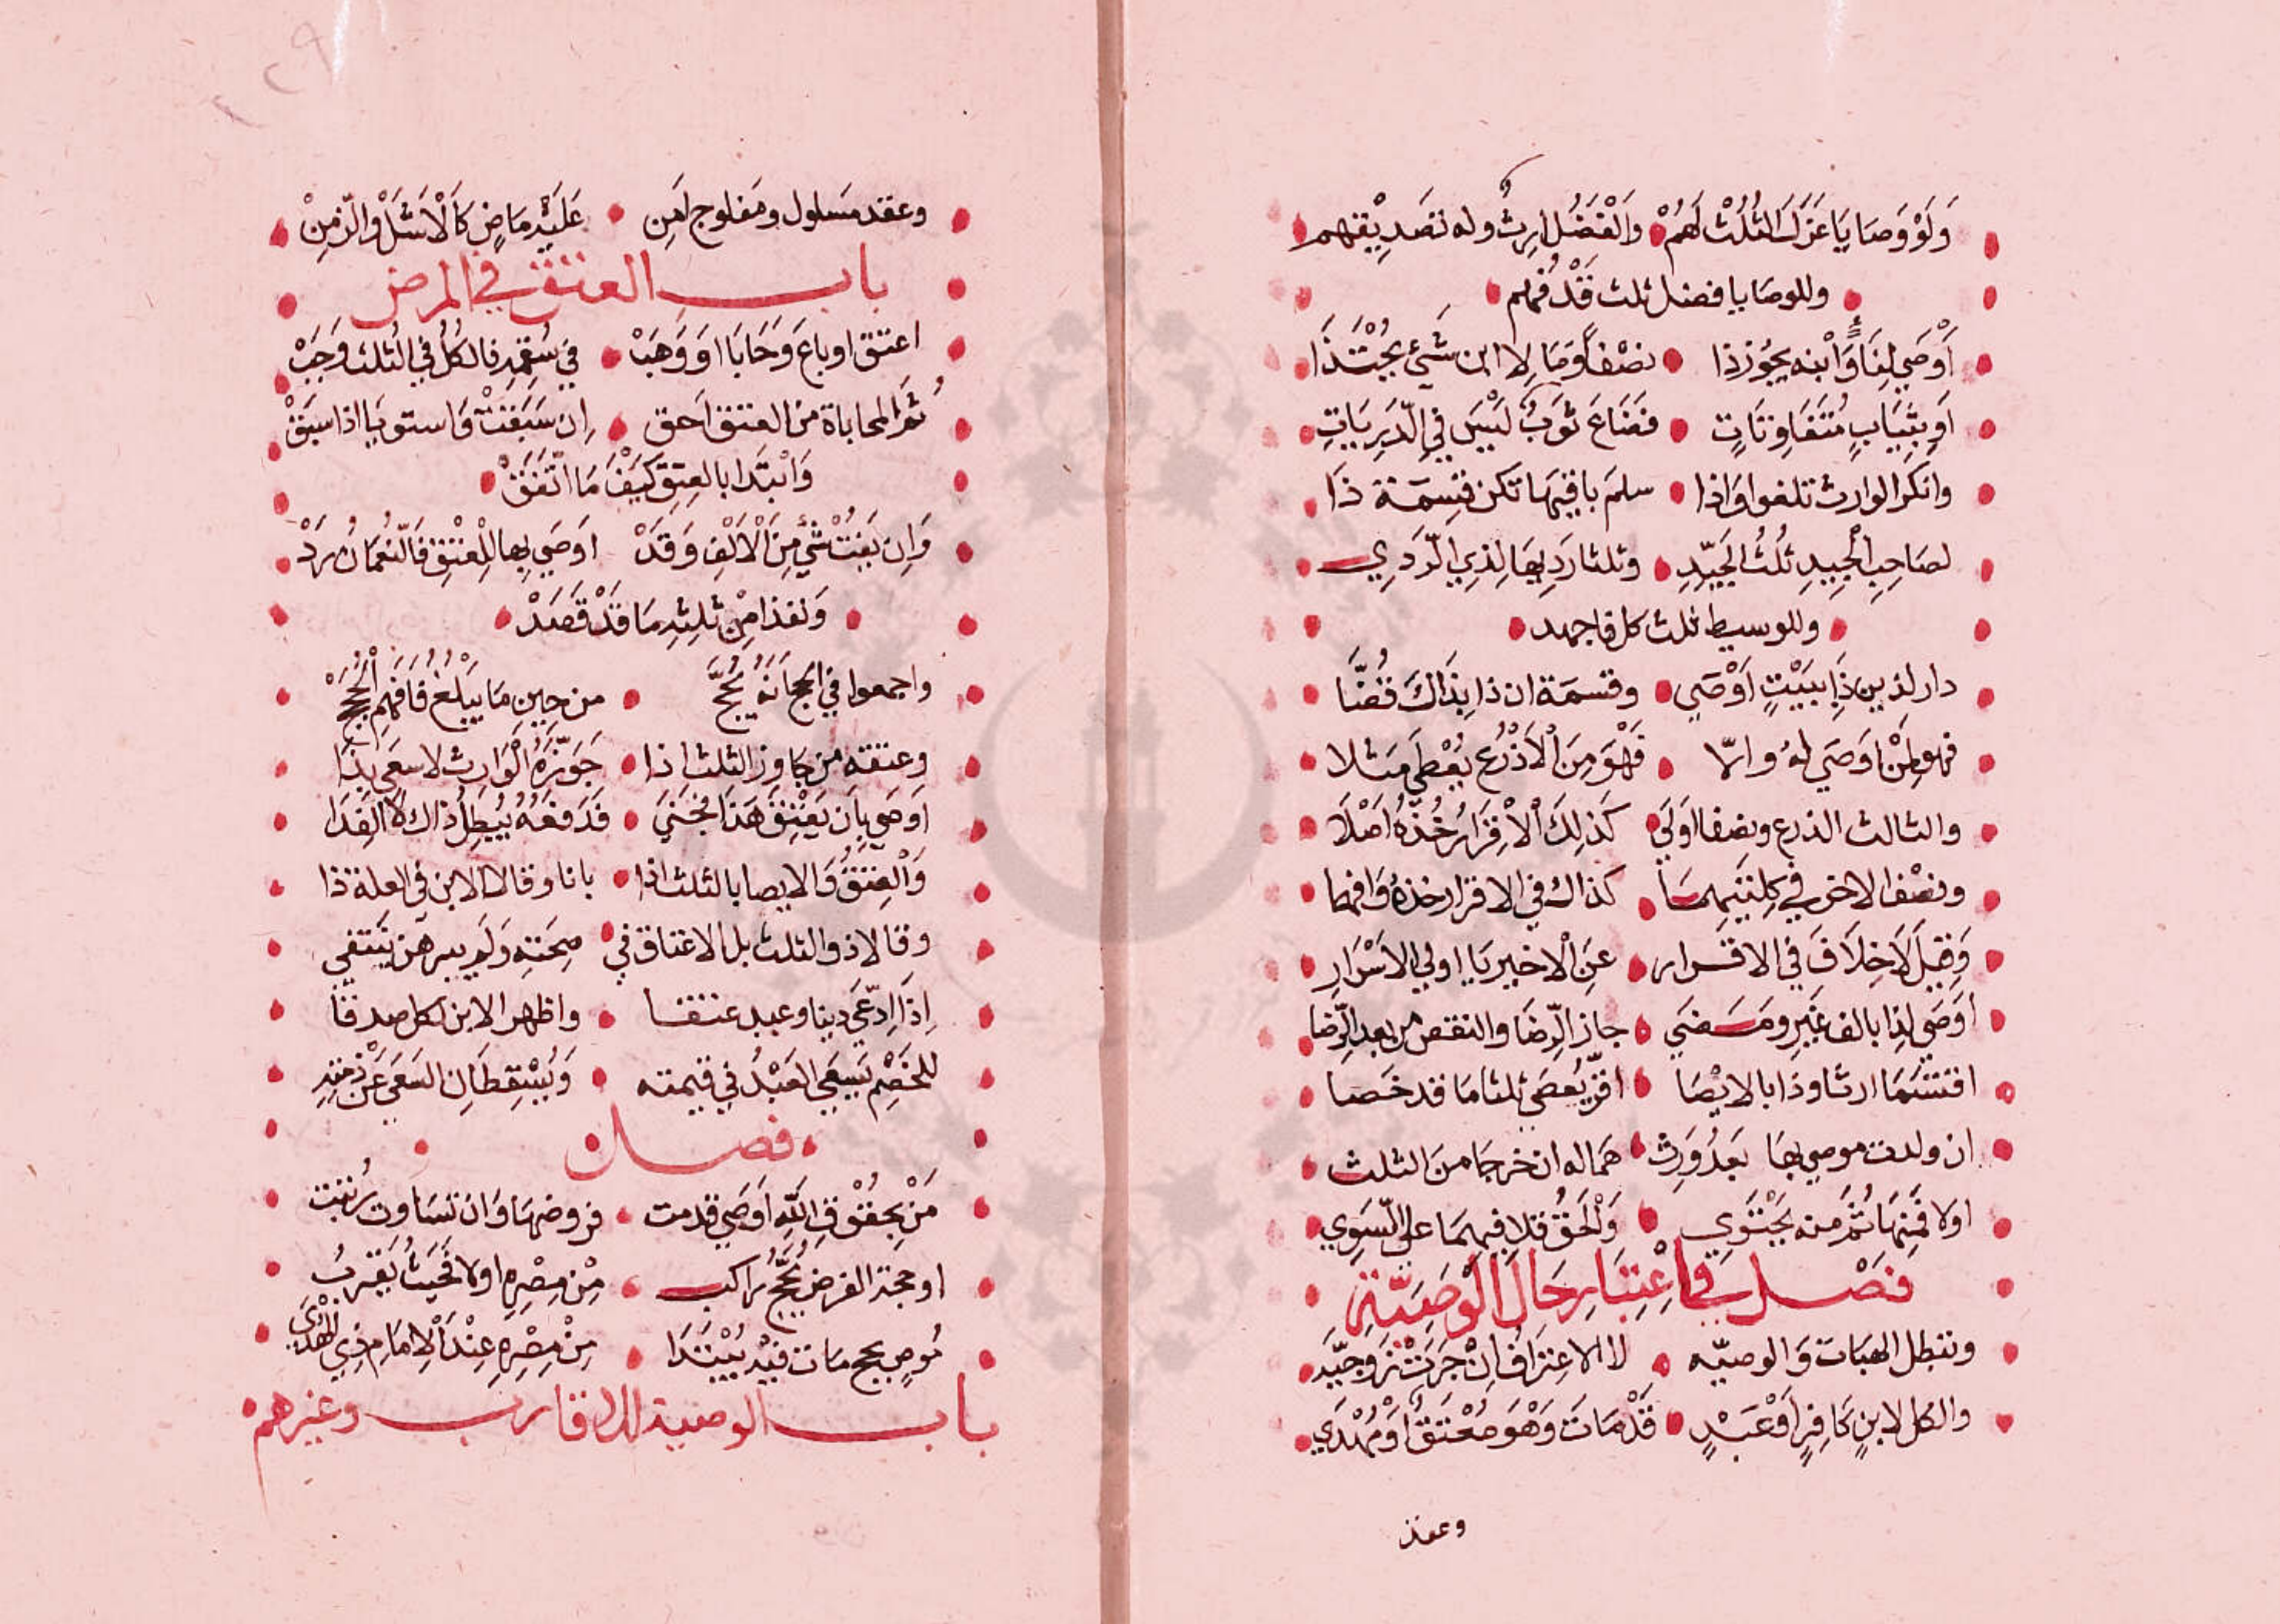 وَلَوْ وَصَايَا عَزَلَ الثُلُثْ لَهُمْ وَالْفَضْلُ ارِثٌ وله تصَدِيْقهم
وللوصَايا فضل ثلث قَدْ فُهم
أَوْصَي لِذَا وَابْنه يجوز ذا نصْفاً وَمَا لِلابن شَيْءٌ يُحْتَذَا
اَو بِثِيَابٍ مُتَفَاوِتَاتٍ فَضَاعَ ثوَبٌ لَيْسَ فِي الدَّيرِيَاتِ
وانكرَ الوارث تلغوا وَاذا سلمَ باقيهَا تكن قِسمَة ذَا
لصَاحِبِ الْجيِيدِ ثُلُثُ الجَيِّدِ وثلثا رَدِيهَا لِذِي الرَّدِي
وللوسيط ثلث كل فاجهد
دار لذين ذَا ببَيْتٍ اَوْصَي وقسمَة ان ذا بِذَاكَ فُضَّا
فهو لِمَنْ اوَصَي لهُ وامّا فَهْوَ مِنَ الْاَذْرُعِ يُعْطَي مَثلا
والثالث الذرع ونصفا اوَلَي كَذلِكَ الْاِقْرَارُ خُذْهُ اَصْلَا
ونصْفا الاخرَي في كِلَيْتَيهمَا كذاك في الاقرار خذهُ وَافهما
وَقِيلَ لَا خِلَافَ فِي الاقرار عَنِ الْاخير يَا اولي الاسْرَارِ
اوَصَى لِذا بالف غَيرِ ومَضَي جاز الرِّضَا والنقض من بعد الرِّضَا
اقتسَمَا ارثا وذَا بالايْصَا اقرّ يُعصَي ثلثا مَا قد خَصَا
ان ولدت موصي بهَا بَعدُ وَرِث همَا له ان خرجا منَ الثلث
اولا فمِنهَا ثُمّ منه يحْتَوِي وَالحَقُ قلا فيهمَا علي السّوِي
فَصْل في اعْتِبَارِ حَالِ الْوَصِيَّةِ
وتبطل الهبَات وَالوصيّه لا الاعترَافُ اِنْ جَرَتْ زَوجيّه
والكل لابنٍ كَافِرٍ اَوْ عَبْدٍ قَدْ مَاتَ وَهْوَ مُعْتَقٌ اوْ مُهْدَي
وعقد
وعقد مَسلول ومَفلوج اَمِن عَلَيْهِ مَاضٍ كَالْاَشَلْ وَالزَّمِنْ
باب العتق في المرض
اعتق او باعَ وَحَابَا اوَ وَهَبْ في سُقمِهِ فالكلُ في الثلث وَجَبْ
ثمّ المحاباة من العتق اَحق اِن سَبَقتْ وَاستويَا اذا سبَقْ
وَابْتَدا بالعِتق كَيْفَ مَا اتَّفَقْ
وَاِن بَقتْ شَيْءٌ مِنَ الْالْفِ وَقَدْ اوَصَي بِها لِلْعتْقِ فَالنُّعْمَانُ رَدْ
وَنفذا مِنْ ثلثِهِ مَا قَدْ قَصَدْ
واجمعوا فِي الحجّ اَنهُ يُحَجّ من حِينِ مَا يَبلُغ فَافهَمِ الْحُجَجْ
وعتقه من جَاوز الثلث اذا جَوّزَهُ الْوَارِث لا سَعَي بذَا
اوَصَي بِاَن يَعْتِقَ هَذا فجَنَي فَدَفعُهُ يُبطِلُ ذاك لا الفِدَا
وَالعِتقُ وَالايصا بالثلث اذا بانا وقالا الابن في العلة ذا
وقال ذو الثلث بل الاعتاق في صِحَتِه وَلم يبرهن يَنْتَفِي
اِذَا اِدّعَي دينا وعبد عتقا واظهر الابن لكل صدقا
للخَصْمِ يَسعَي العَبْدُ في قيمته وَيُسْقِطَانِ السَعَي عَنْ ذمّتِهِ
فصل
مَنْ بِحُقُوقِ اللهِ اَوصَي قدمت فروضهَا وَان تسَاوت رُتبت
او حجة الفرض يُحَجّ راكب مِنْ مِصْرِهِ اولا فَحَيْثُ يَقرُبُ
مُوصٍ بحج مات فيْهِ يُبْتَدَا مِنْ مِصْرِهِ عِنْدَ الْاِمَامِ ذِي الهُدَي
باب الوصية للاقارب وغيرهم